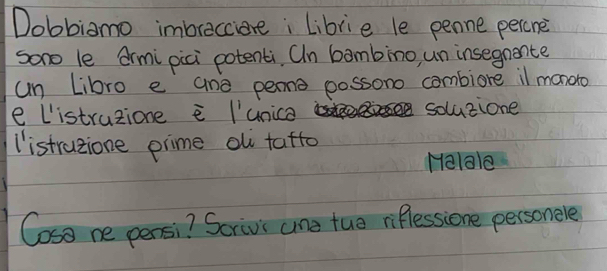 Dobbiamo imbracciare i libri e le penne perchè
sono le armi più potenti. Un bambino, un insegnante
un Libro e una penna possono cambiare il mondo
e L'istruzione è l'unica soluzione
l'istruzione prima di tutto
Malala
Cosa ne pensi? Scrivi una tua riflessione personale